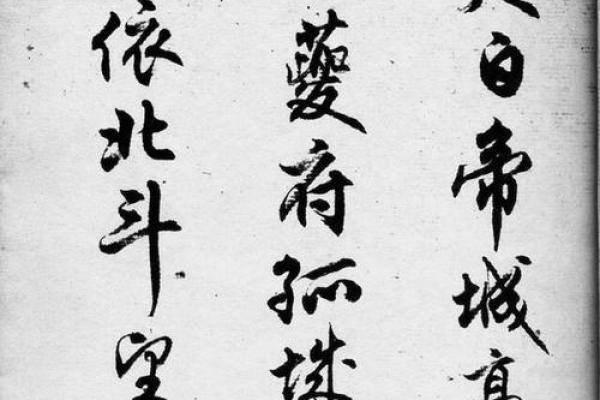 白帝城高
夔府孤城
依北斗望